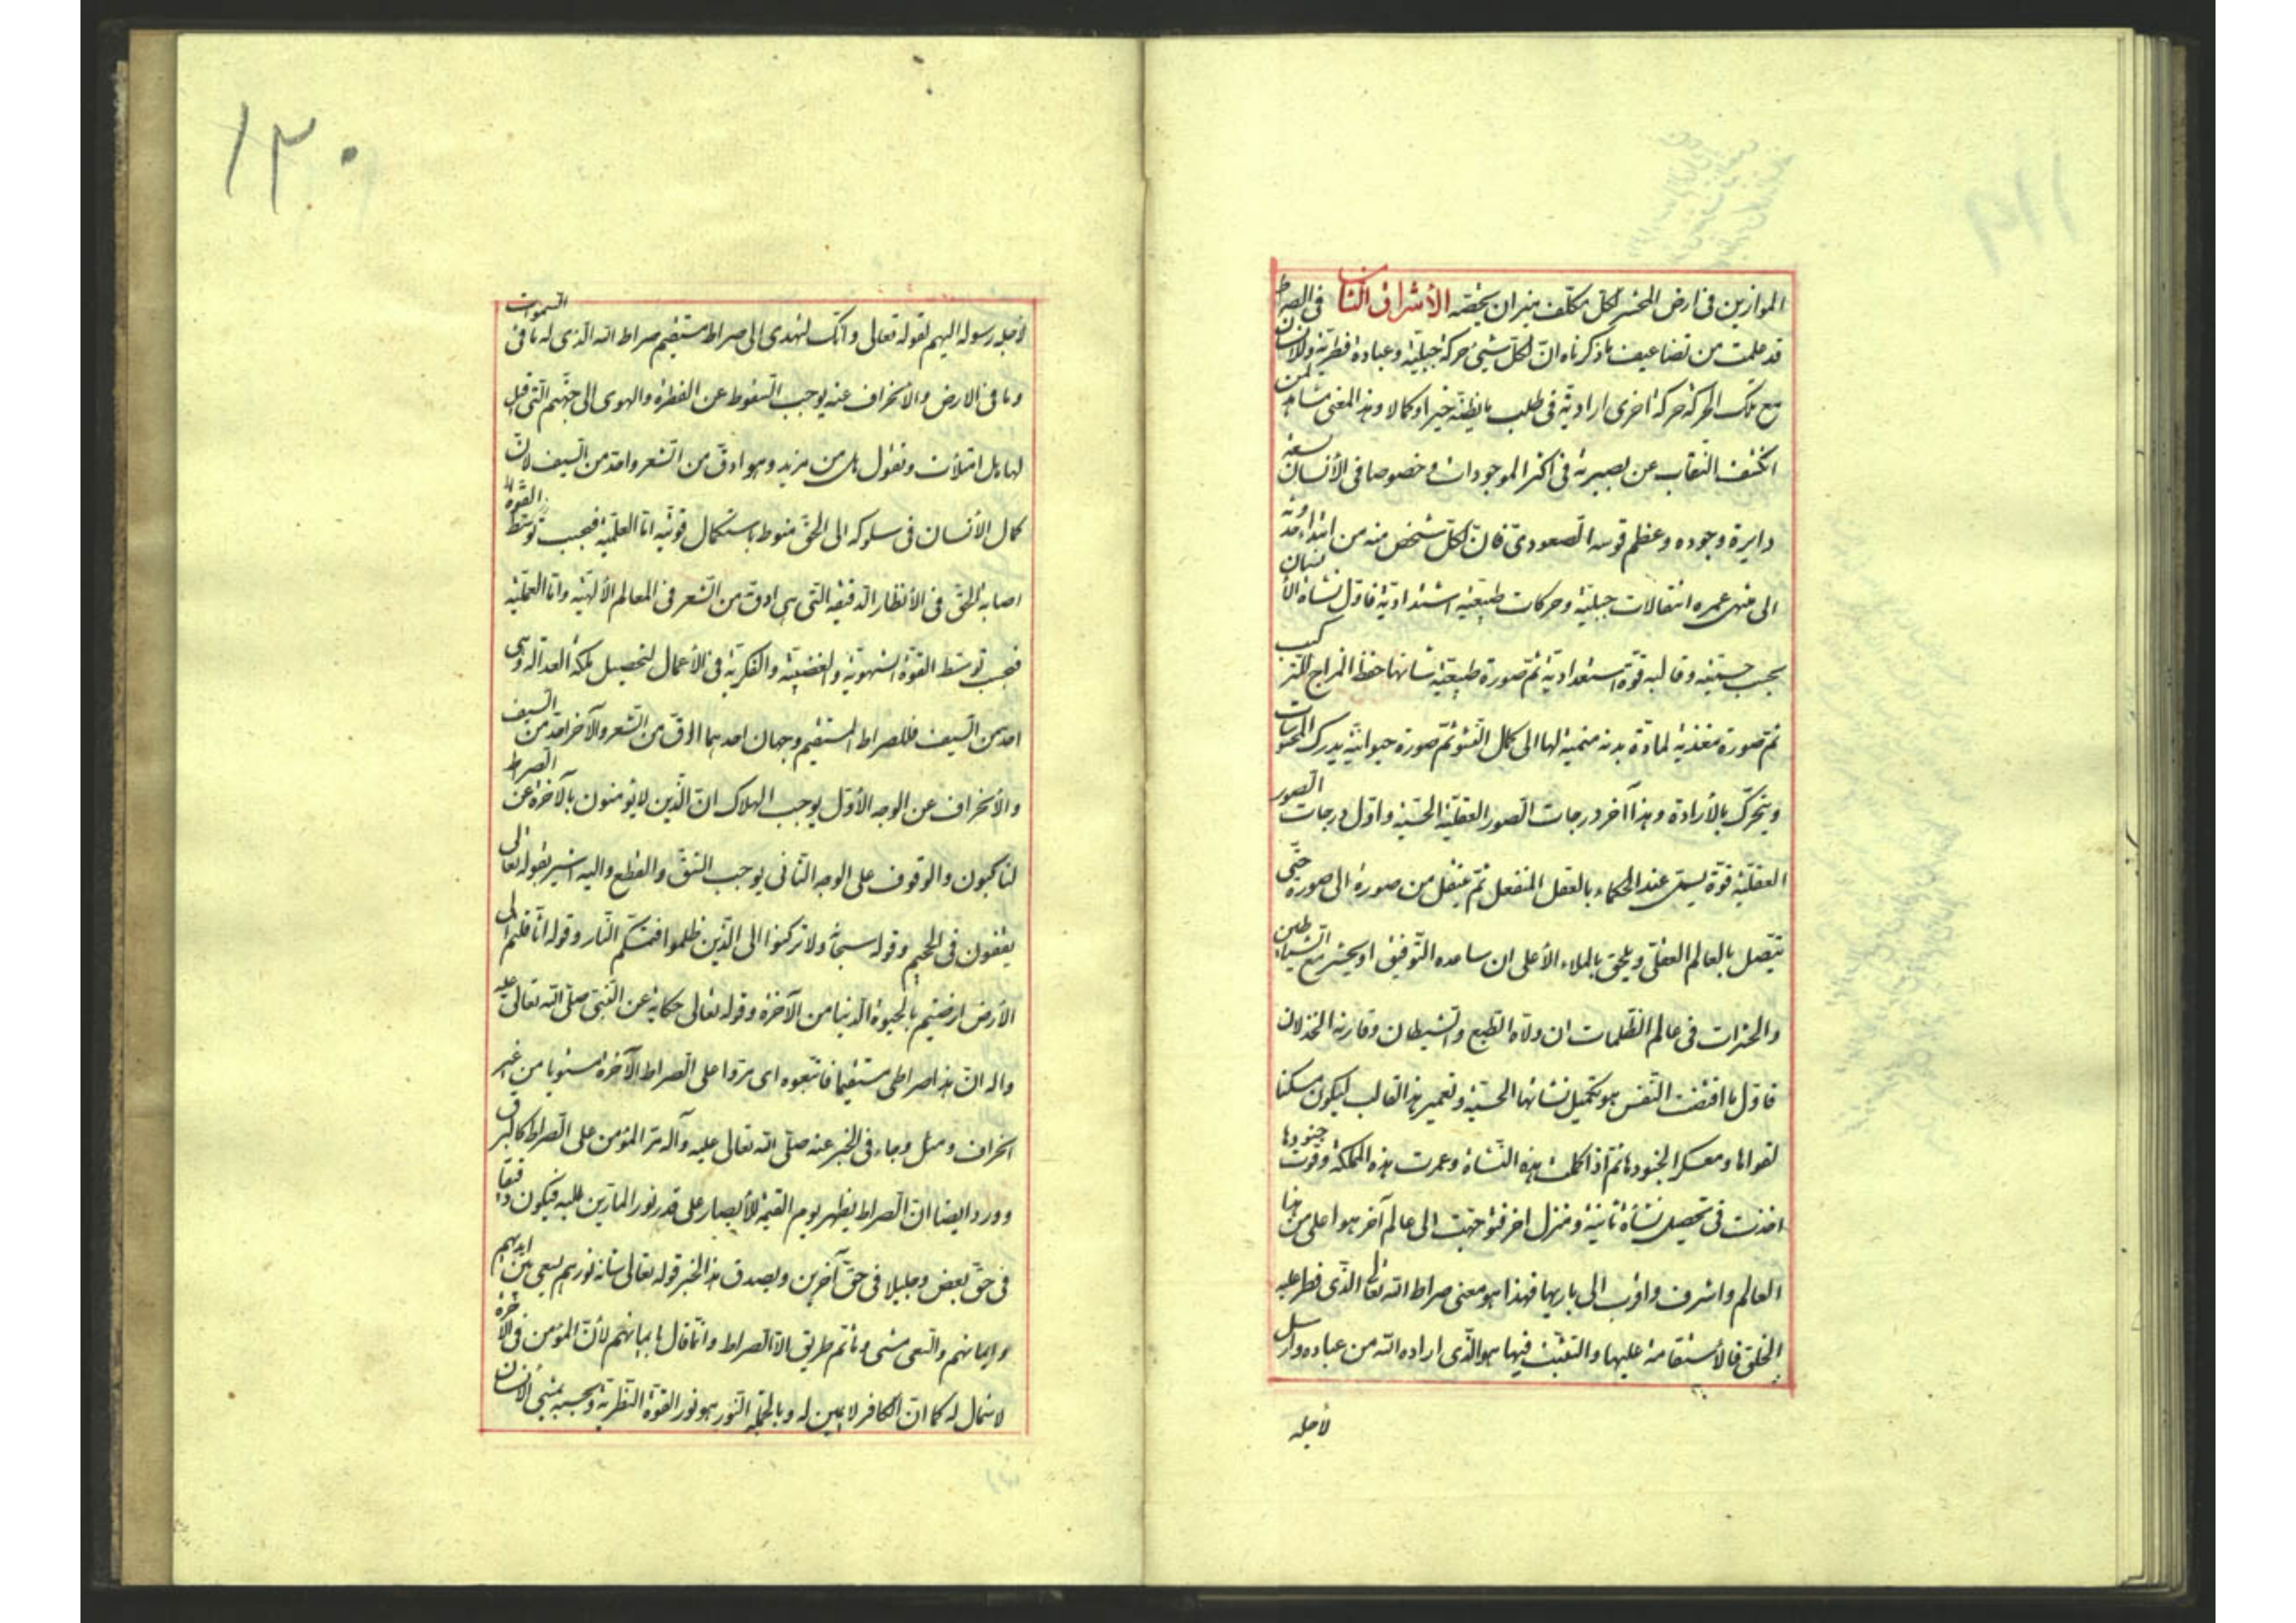 الموازين فی ارض المحشر لكلّ مكلّف ميزان يخصّه الأشراق الثامن فی الصراط
قد علمت من تضاعيف ما ذكرناه انّ لكلّ شیء حركة جبليّة و عبادة فطريّة و للانسان
مع تلك الحركة حركة اخری اراديّة فی طلب ما يظنّه خيرا و كمالا و هذا المعنی مشاهد لمن
انكشف النقاب عن بصيرته فی اكثر الموجودات و خصوصا فی الأنسان لسعة
دايرة وجوده و عظم قوسه الصعودی فانّ لكلّ شخص منه من ابتداء حدوثه
الی منتهی عمره انتقالات جبليّة و حركات طبيعيّة اشتداديّة فاوّل نشاة الأنسان
بحسب جسميّته و قالبه قوّة استعداديّة ثمّ صورة طبيعيّة شانها حفظ المزاج للتركيب
ثم صورة مغذية لمادّة بدنه منمية لها الی كمال النشو ثمّ صورة حيوانيّة يدرك المحسوسات
و يتحرّك بالأرادة و هذا آخر درجات الصور العقليّة الحسّيّة و اوّل درجات الصور
العقليّة قوّة يسمّی عند الحكماء بالعقل المنفعل ثم ينتقل من صورة الی صورة حتّی
يتّصل بالعالم العقلی و يلحق بالملاء الأعلی ان ساعده التوفيق او يحشر مع الشياطين
و الحشرات فی عالم الظلمات ان ولّاه الطبع و الشيطان و قارنه الخذلان
فاوّل ما اقتضت النفس هو تكميل نشاتها الحسّيّة و تعمير هذا القالب ليكون مسكنا
لقواها و معسكرا لجنودها ثم اذا كملت هذه النشاة و عمرت هذه المملكة و قوّت جنودها
اخذت فی تحصيل نشاة ثانية و منزل اخر فتوجّهت الی عالم آخر هو اعلی من هذا
العالم و اشرف و اقرب الی باريها فهذا هو معنی صراط الله تعالی الذی فطر عليه
الخلق فالأستقامة عليها و التثبّت فيها هو الذی اراده الله من عباده و ارسل
لأجله
١٣٠
لأجله رسوله اليهم لقوله تعالی و انّك لتهدی الی صراط مستقيم صراط الله الذی له ما فی السموات
و ما فی الارض و الأنحراف عنه يوجب السقوط عن الفطرة و الهوی الی جهنّم التی قيل
لها هل امتلأت و تقول هل من مزيد و هو ادقّ من الشعر و احدّ من السيف لأنّ
كمال الأنسان فی سلوكه الی الحق منوط باستكمال قوّتيه امّا العلميّة فبحسب توسّط القوّة
اصابة الحقّ فی الأنظار الدقيقة التی هی ادقّ من الشعر فی المعالم الألهيّة و امّا العمليّة
فبحسب توسّط القوّة الشهويّة و الغضبيّة و الفكريّة فی الأعمال لتحصيل ملكة العدالة و هی
احدّ من السيف فللصراط المستقيم وجهان احدهما ادقّ من الشعر و الآخر احدّ من السيف
و الأنحراف عن الوجه الأوّل يوجب الهلاك انّ الّذين لا يؤمنون بالآخرة عن الصراط
لناكبون و الوقوف علی الوجه الثانی يوجب الشقّ و القطع و اليه اشير بقوله تعالی
يقفون فی الجحيم و قوله سبحانه و لا تركنوا الی الّذين ظلموا فتمسّكم النّار و قوله اثّاقلتم الی
الأرض ارضيتم بالحيوة الدنيا من الآخرة و قوله تعالی حكاية عن النّبی صلّی الله تعالی عليه
و اله انّ هذا صراطی مستقيما فاتّبعوه ای مرّوا علی الصراط الآخرة مستويا من غير
انحراف و ميل و جاء فی الخبر عنه صلّی الله تعالی عليه و آله يمرّ المؤمن علی الصراط كالبرق
و ورد ايضا انّ الصراط يظهر يوم القيمة للأبصار علی قدر نور المارّين عليه فيكون دقيقا
فی حقّ بعض و جليلا فی حقّ آخرين و يصدق هذا الخبر قوله تعالی شانه نورهم يسعی بين ايديهم
و بايمانهم و السعی مشی و ما ثم طريق الّا الصراط و انّما قال بايمانهم لأنّ المؤمن فی الآخرة
لا شمال له كما انّ الكافر لا يمين له و بالجملة النّور هو نور القوّة النظريّة و بحسبه يمشی الأنسان